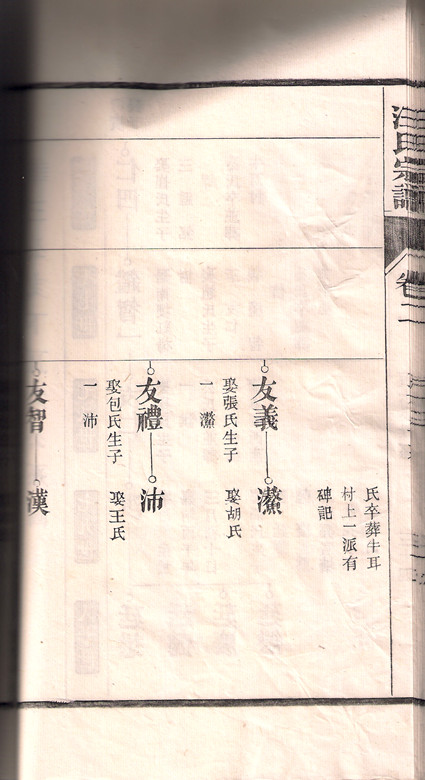 汪氏宗譜
卷二
氏卒葬牛耳
村上一派有
碑記
友義
娶張氏生子
一 瀠
瀠
娶胡氏
友禮
娶包氏生子
一 沛
沛
娶王氏
友智
漢